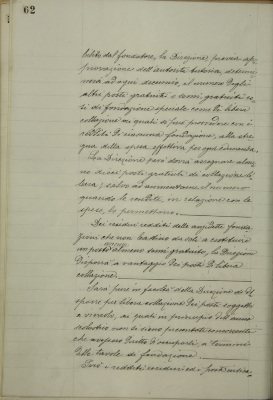 62
bilite dal fondatore, la Direzione, previa ap-
provazione dell'autorità tutoria, determi-
nerà ad ogni decennio, il numero degli
altri posti gratuiti e semi gratuiti es-
si di fondazione speciale come di libera
collazione ai quali si può provvedere con i
redditi di ciascuna fondazione, alla stre-
gua della spesa effettiva per ogni educanda.
La Direzione però dovrà assegnare alme-
no dieci posti gratuiti di collazione li-
bera; salvo ad aumentarne il numero
quando le rendite, in relazione con le
spese, lo permettano.
Dei residui redditi delle anzidette fonda-
zioni che non bastino da soli a costituire
un posto almeno semi gratuito, la Direzione
disporrà a vantaggio dei posti di libera
collazione.
Sarà pure in facoltà della Direzione di di-
sporre per libera collazione dei posti soggetti
a vincolo, ai quali in principio di anno
scolastico non le siano presentate concorrenti
che avessero diritto d'occuparli, a termini
delle tavole di fondazione.
Però i redditi residui ed i posti